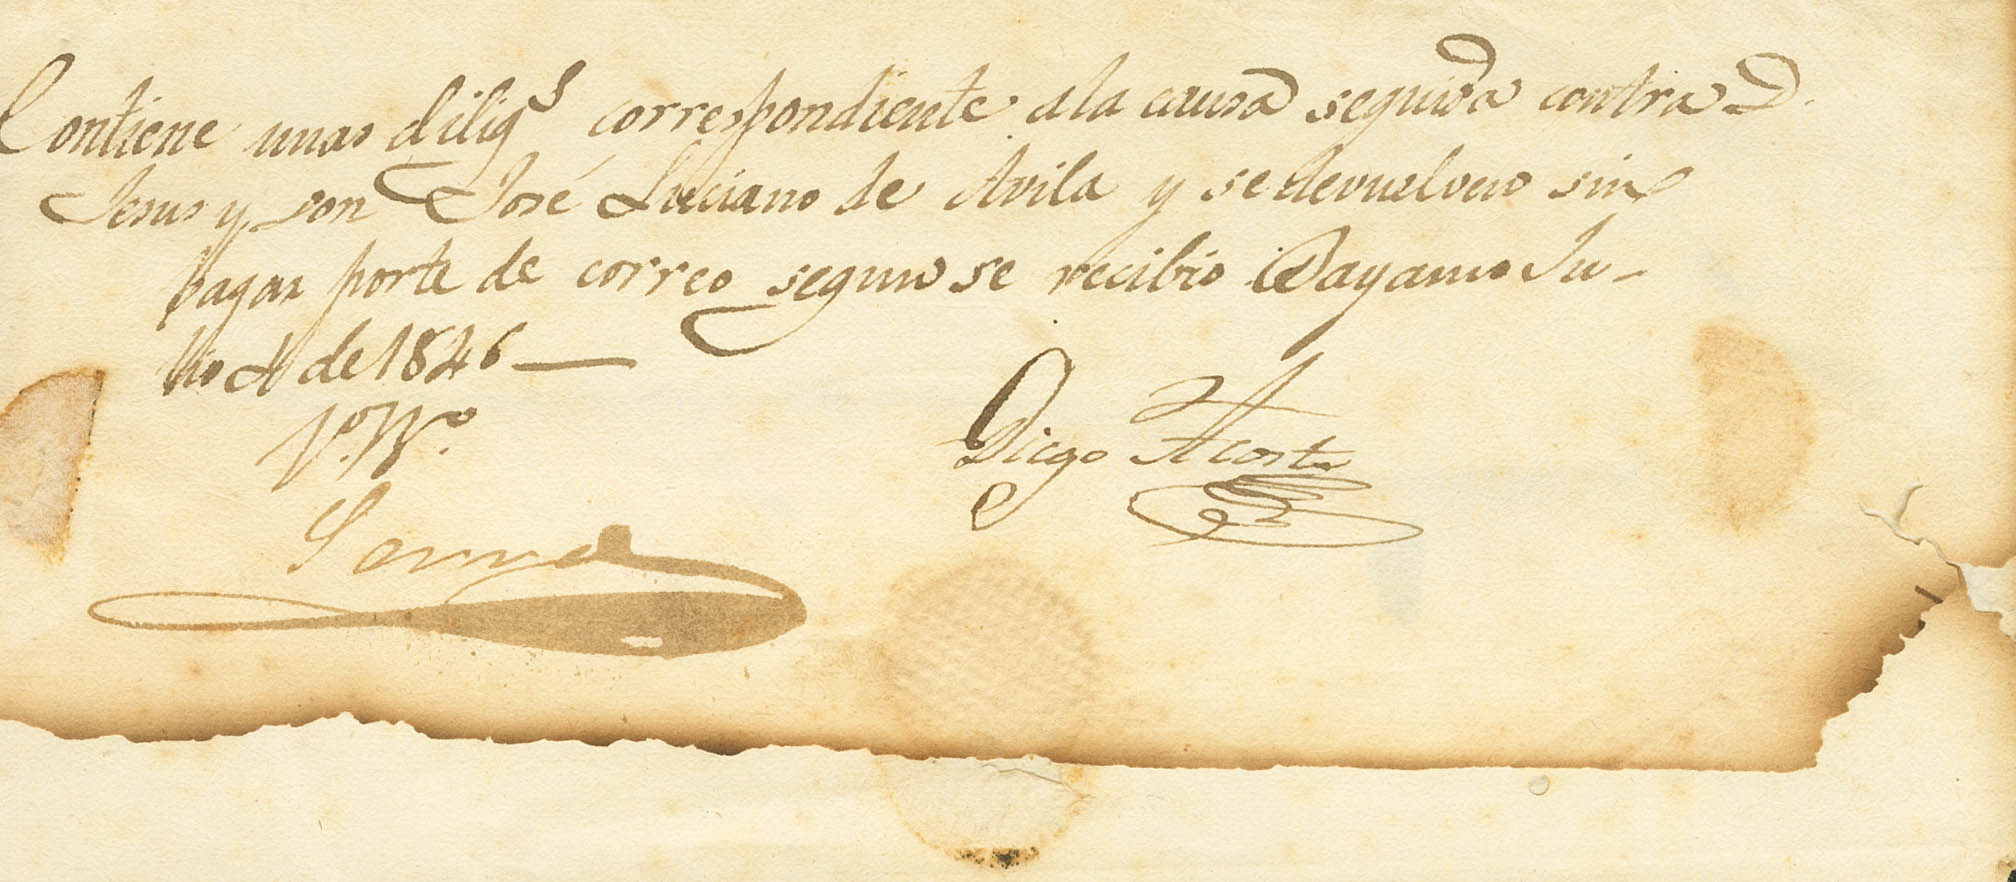 Contiene unas diligs correspondiente a la causa seguida contra D.
Jesus y son José Luciano de Avila y se devuelven sin
pagar porte de correo segun se recibio Bayamo Ju-
lio de 1846
Vo. Bo.
Diego Acosta